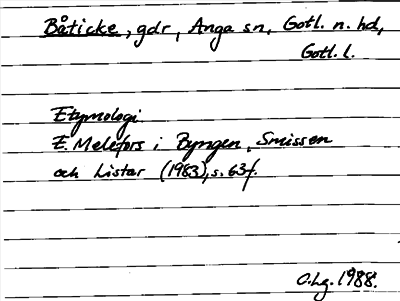 Båticke, gdr, Anga sn, Gotl. n. hd,
Gotl. l.
Etymologi
E. Melefors i Byngen, Smissen
och Listar (1983), s. 63f.
O.hg. 1988.